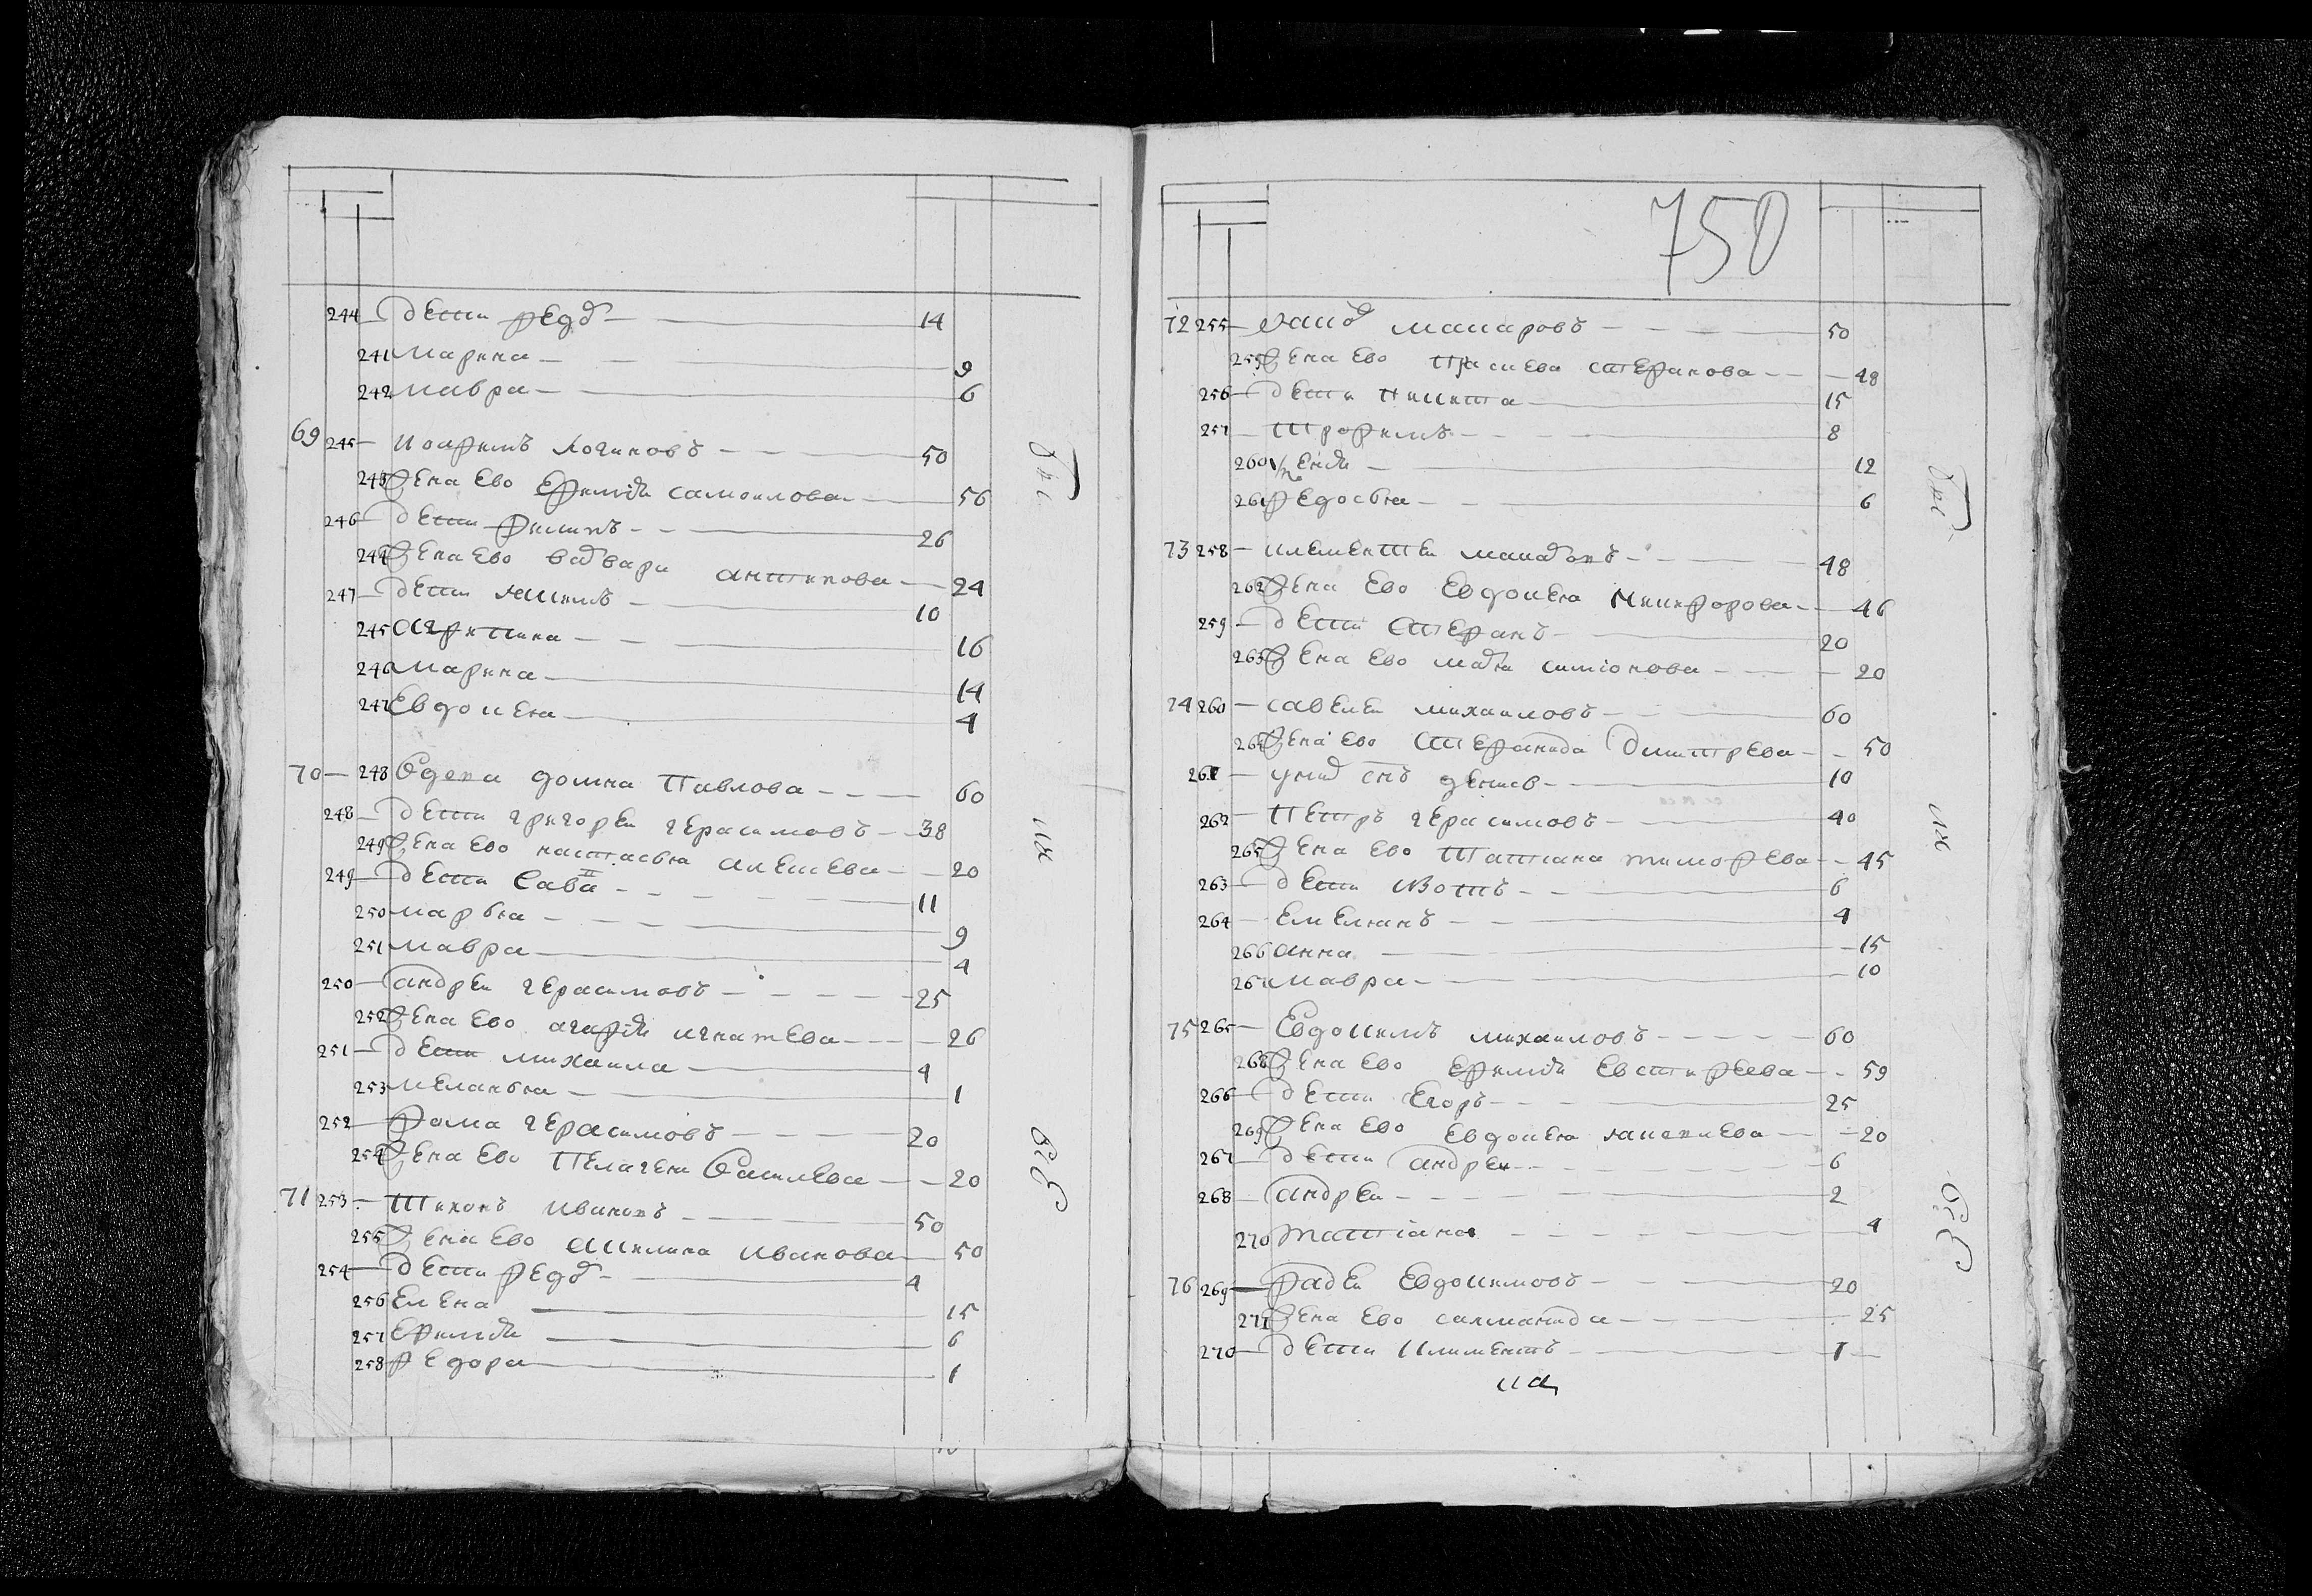 244 дети федоръ 14
241 марина 9
242 мавра 6
69 245 иоакимъ логиновъ 50
243 жена ево ефимiя самоилова 56
246 дети филипъ 26
244 жена ево варвара антипова 24
247 дети якимъ 10
245 агрипина 16
246 марина 14
247 Евдокея 4
70 248 вдова домна павлова 60
248 дети григореи герасимовъ 38
249 жена ево настасья алексева 20
249 дети сава 11
250 марья 9
251 мавра 4
250 андреи герасимовъ 25
252 жена ево агафiя игнатева 26
251 дети михаила 4
253 меланья 1
252 фома герасимовъ 20
254 жена ево пелагея василева 20
71 253 тихонъ ивановъ 50
255 жена ево акилина иванова 50
254 дети федоръ 4
256 елена 15
257 ефимiя 6
258 федора 1
750
72 255 макаровъ 50
259 жена ево степанова 48
256 дети никита 15
257 трофимъ 8
260 12
261 федосья 6
73 258 клементеи макаровъ 48
262 жена ево евдокея никифорова 46
259 дети степанъ 20
263 жена ево марья симiонова 20
74 260 савелеи михаиловъ 60
264 жена ево степанида дмитрева 50
261 снъ денисъ 10
262 петръ герасимовъ 40
265 жена ево татиана тимофева 45
263 дети изотъ 6
264 емелианъ 4
266 анна 15
267 мавра 10
75 265 евдокимъ михаиловъ 60
268 жена ево ефимiя евстифеева 59
266 дети егоръ 25
269 жена ево евдокея 20
267 дети андреи 6
268 андреи 2
270 татiана 4
76 269 фадеи евдокимовъ 20
271 жена ево саламанида 25
270 дети климентъ 1